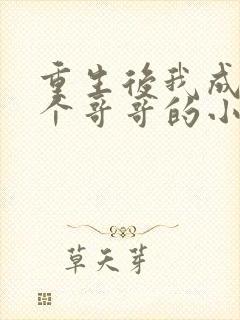 重生後我成
个哥哥的小
草天芽